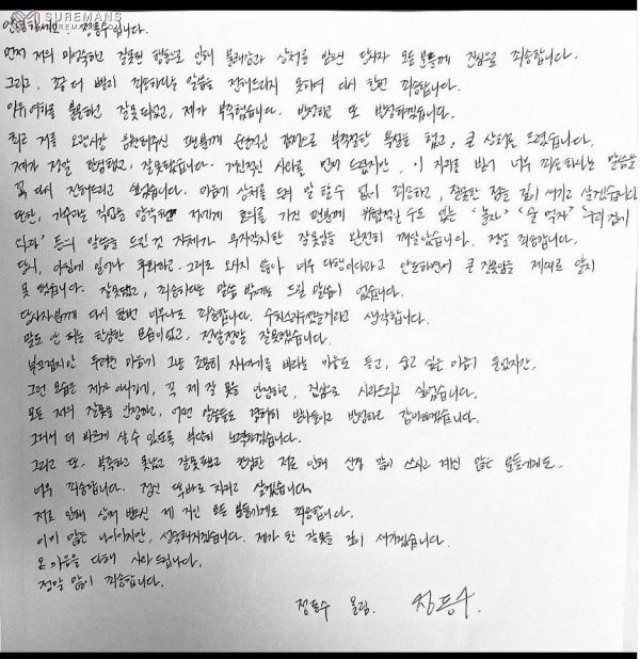 SUREMANS
SUREMANS.COM
안녕하세요. 정동수입니다.
먼저 저의 미숙하고 잘못된 행동으로 인해 불쾌감과 상처를 받으신 당사자 모든 분들께 진심으로 죄송합니다.
그리고, 좀 더 빨리 죄송하다는 말씀을 전해드리지 못하여 다시 한번 죄송합니다.
이유여하를 불문하고 잘못되었고, 제가 부족했습니다. 반성하고 또 반성하겠습니다.
최근 저를 오랜시간 응원해주신 팬분께 부적절한 했고, 큰 상처를 드렸습니다.
제가 정말 한심했고, 잘못했습니다. 개인적인 사과를 먼저 드렸지만, 이 자리를 빌어 너무 죄송하다는 말씀을
꼭 다시 전해드리고 싶었습니다. 마음에 상처를 드려 말할 수 없이 죄송하고, 잘못한 점을 깊이 새기고 살겠습니다
또한, 가수라는 직업을 망각한 저에게 호의를 가진 팬분께 위협적일 수도 있는 '혼자' '술 먹자' '우리 집에
등의 말씀을 드린 것 자체가 무지각하고 잘못임을 완전히 깨달았습니다. 정말 죄송합니다.
당시, 아침에 일어나 후회하고 그대로 오시지 않아 너무 다행이다라고 안도하면서 큰 잘못임을 제대로 알지
못 했습니다. 잘못했고, 죄송하다는 말씀 밖에는 드릴 말씀이 없습니다.
당사자분께 다시 한번 너무나도 죄송합니다. 생각합니다.
말도 안 되는 한심한 모습이었고, 정말정말 잘못했습니다.
부끄럽지만 두려운 마음에 그냥 조용히 지나가기를 바라는 마음도 들고, 숨고 싶은 마음이 들었지만,
그런 모습은 제가 아니기에, 꼭 제 잘못을 인정하고, 진심으로 사과드리고 싶었습니다.
모든 저의 잘못을 인정하고, 어떤 말씀들도 겸허히 받아들이고 반성하고 감내하겠습니다.
그래서 더 바르게 살 수 있도록 부단히 노력하겠습니다.
그리고 또, 부족하고 못났고 잘못했고 한심한 저로 인해 신경 많이 쓰시고 계신 많은 분들에게도,
너무 죄송합니다. 정신 똑바로 차리고 살겠습니다.
저로 인해 상처 받으신 제 지인 모든 분들에게도 죄송합니다.
이미 많은 나이이지만, 성숙해지겠습니다. 제가 한 잘못을 깊이 새기겠습니다.
온 마음을 다해 사과드립니다.
정말 많이 죄송합니다.
정동수 올림. 정동수.